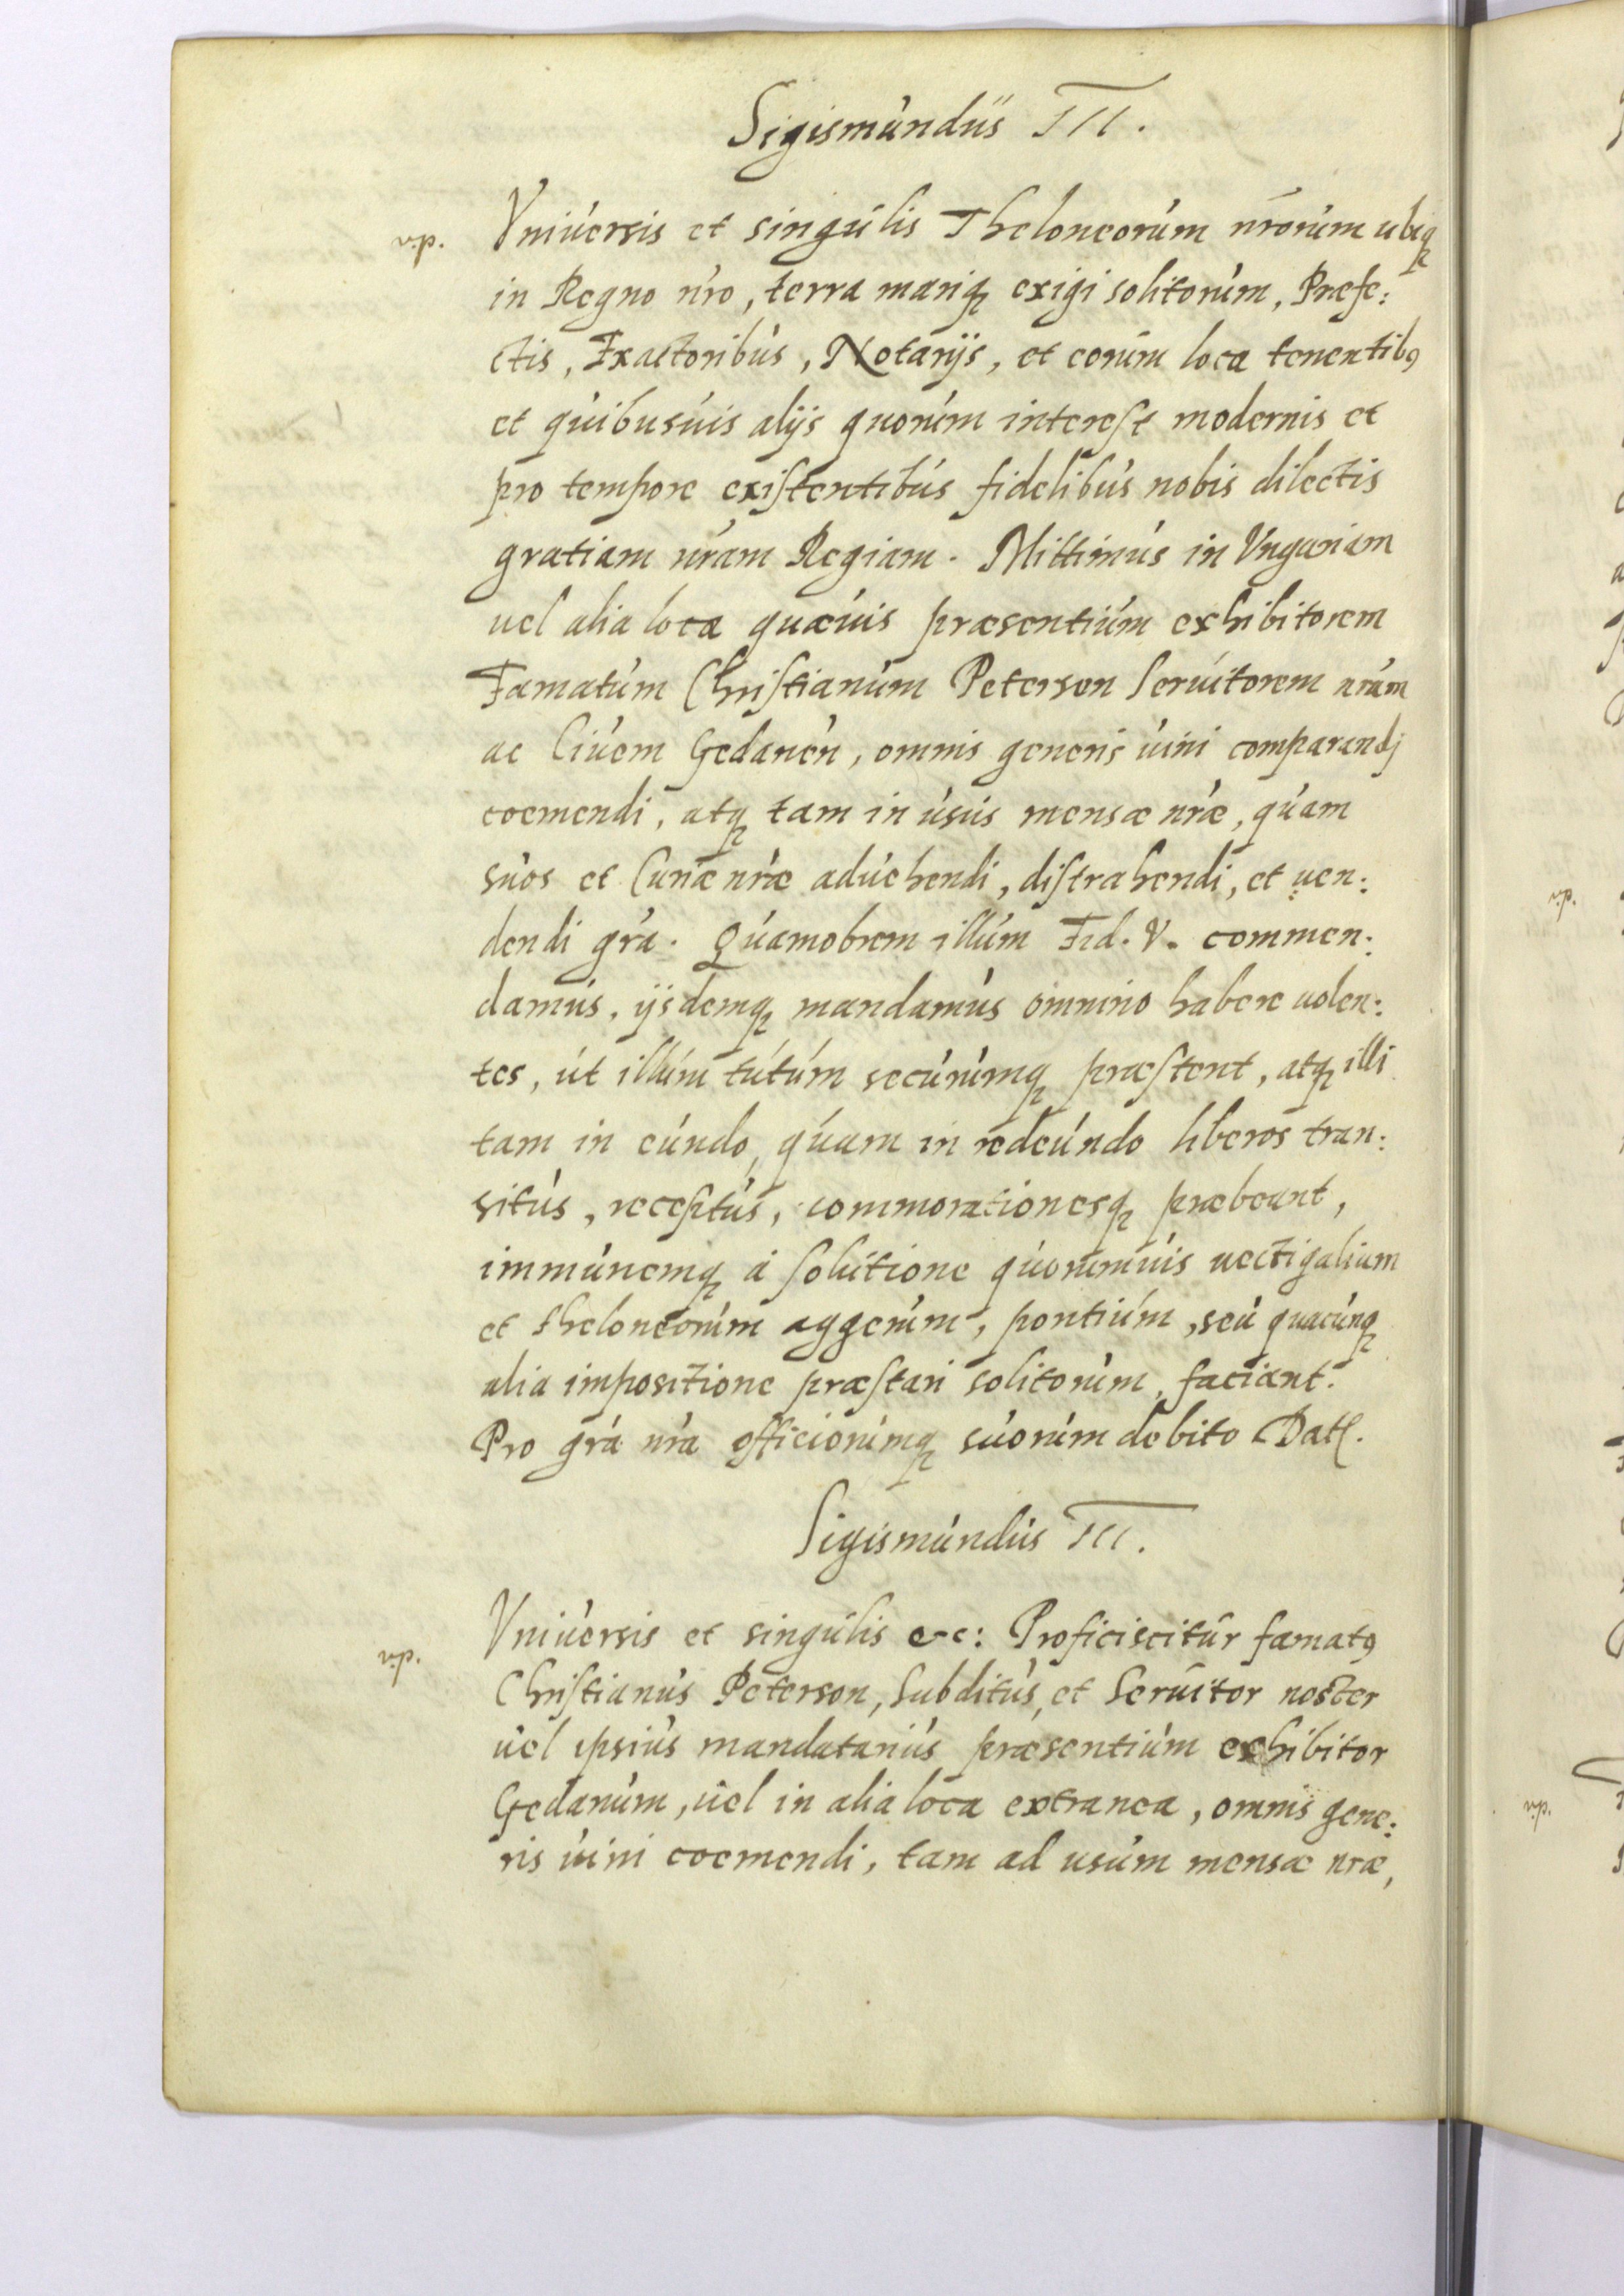 Sigismundus III.
Vniuersis et singulis Theloneorum nrorum ubiq
in Regno nro, terra mariq exigi solitorum, Praefe:
ctis, Exactoribus, Notarijs, et eorum loca tenentib9
et quibusuis alijs quorum interest modernis et
pro tempore existentibus fidelibus nobis dilectis
gratiam nram Regiam. Mittimus in Vngariam
uel alia loca quaeuis praesentium exhibitorem
Famatum Christianum Peterson Seruitorem nrum
ac Ciuem Gedanen, omnis generis uini comparandj
coemendi, atq tam in usus mensae nrae, quam
suos et Curiae nrae aduehendi, distrahendi, et uen:
dendi gra. Quamobrem illum Fid. V. commen:
damus, ijsdemq mandamus omnino habere uolen:
tes, ut illum tutum securumq praestent, atq illi
tam in eundo, quam in redeundo liberos tran:
situs, receptus, commorationesq praebeant,
immunemq a solutione quorumuis uectigalium
et theloneorum aggerum, pontium, seu quacunq
alia impositione praestari solitorum, faciant.
Pro gra nra officiorumq suorum debito Dat.
Sigismundus III.
Vniuersis et singulis &c: Proficiscitur famat9
Christianus Peterson, Subditus, et Seruitor noster
uel ipsius mandatarius praesentium exhibitor
Gedanum, uel in alia loca extranea, omnis gene:
ris uini coemendi, tam ad usum mensae nrae,